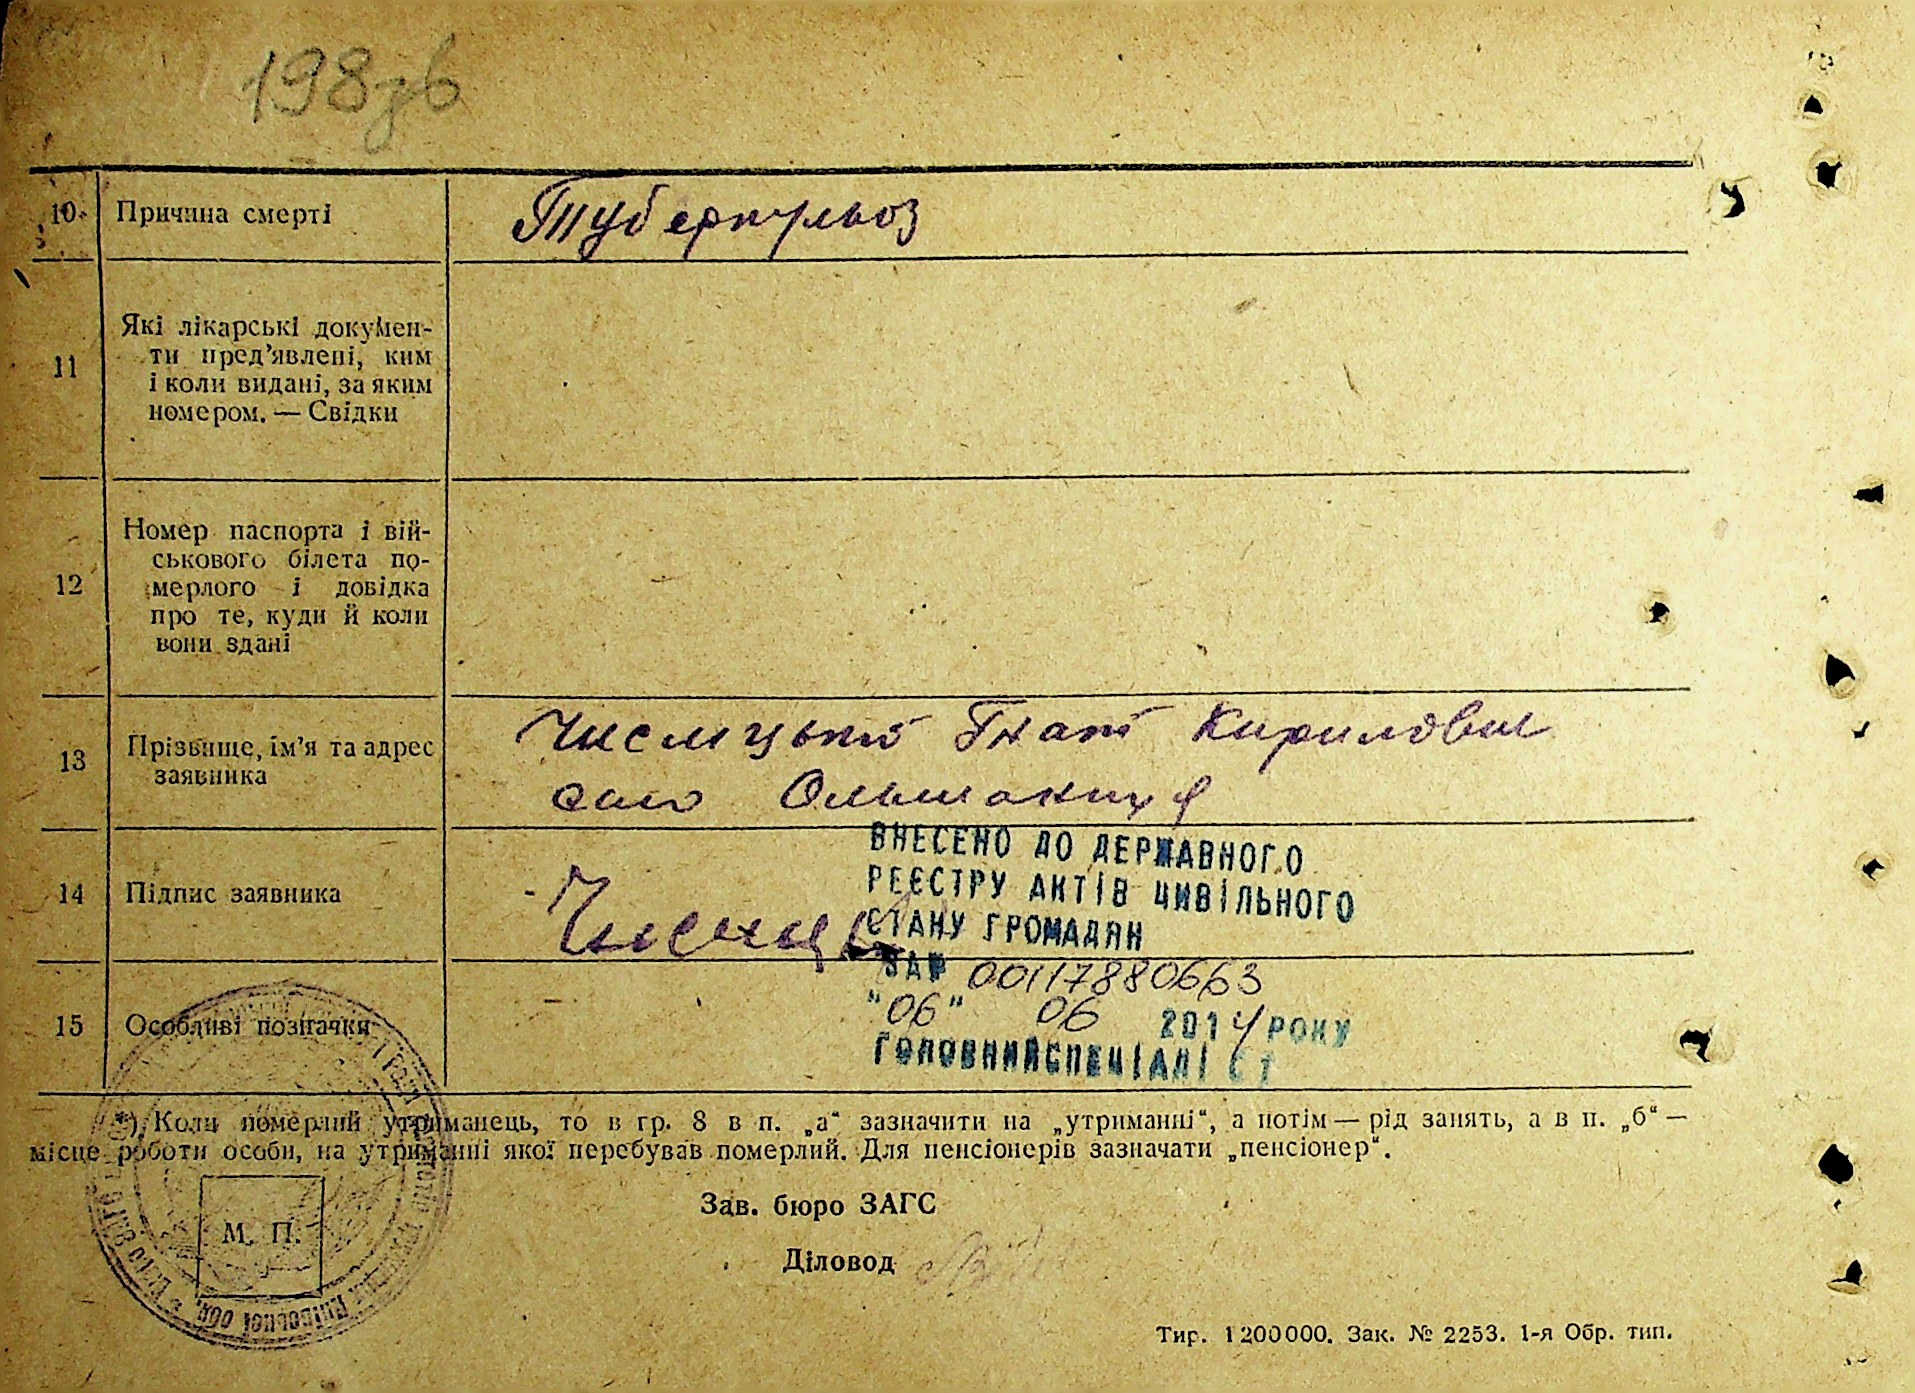 198зв
10. Причина смерті
Туберкульоз
11
Які лікарські докумен-
ти пред’явлені, ким
і коли видані, за яким
номером. — Свідки
12
Номер паспорта і вій-
ськового білета по-
мерлого і довідка
про те, куди й коли
вони здані
13
Прізвище, ім’я та адрес
заявника
Гнат Кирилович
село
14 Підпис заявника
ВНЕСЕНО ДО ДЕРЖАВНОГО
РЕЄСТРУ АКТІВ ЦИВІЛЬНОГО
СТАНУ ГРОМАДЯН
ЗА № 00117880663
"06" 06 2014 РОКУ
ГОЛОВНИЙ СПЕЦІАЛІСТ
15 Особливі позначки
*) Коли померлий утриманець, то в гр. 8 в п. „а“ зазначити на „утриманні“, а потім — рід занять, а в п. „б“ —
місце роботи особи, на утриманні якої перебував померлий. Для пенсіонерів зазначати „пенсіонер“.
Зав. бюро ЗАГС
М. П.
Діловод
Київської обл.
Тир. 1200000. Зак. № 2253. 1-я Обр. тип.